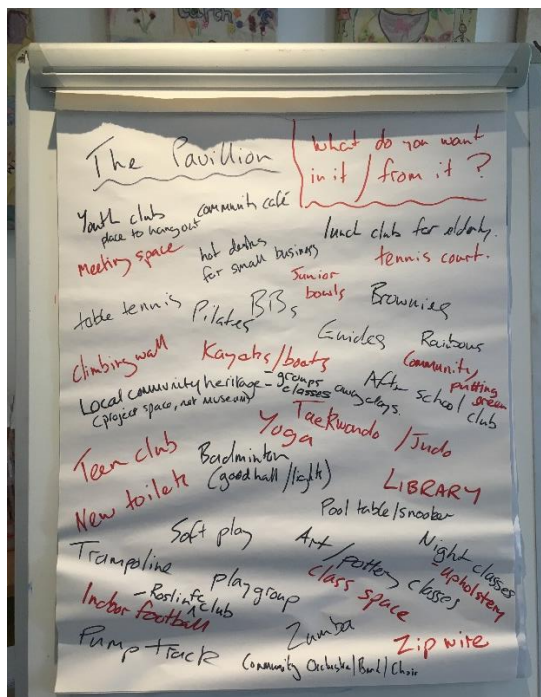 The Pavillion
What do you want
in it / from it ?
Youth club
place to hang out
community café
lunch club for elderly.
Meeting space
hot desks
for small business
tennis court.
Junior
bowls
table tennis
Pilates
BBs
Brownies
Guides
Rainbows
Climbing wall
Kayaks/boats
Community/
putting
green
Local community heritage - groups
classes
away days.
(project space, not museum)
After school club
Taekwondo / Judo
Yoga
Teen club
Badminton
(good hall / lights)
LIBRARY
New toilets
Pool table/snooker
Soft play
Art / pottery classes
Night classes
- upholstery
Trampoline
playgroup
class space
Indoor football
club
Zumba
Zip wire
Pump track
Community Orchestra/Band/Choir